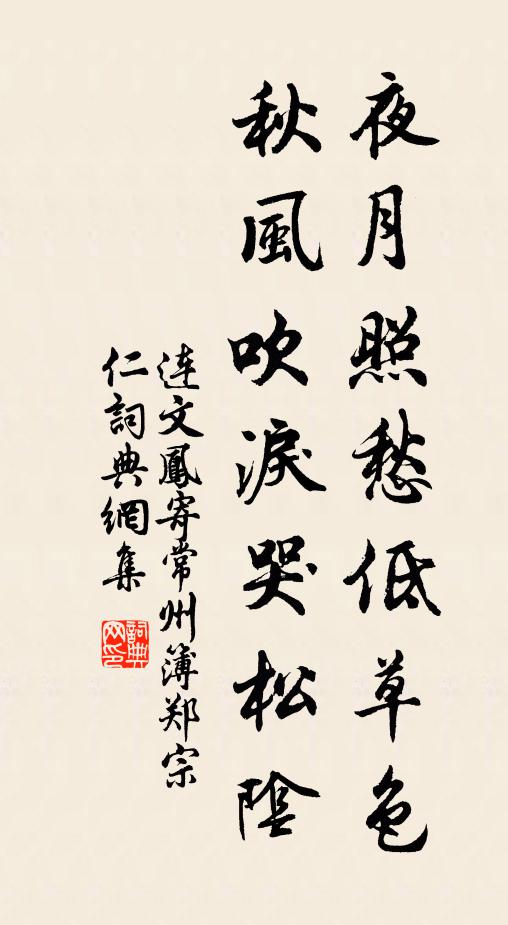 夜月照愁低草色
秋風吹淚哭松陰
連文鳳寄常州簿郑宗
仁詞典網集
詞典
网印